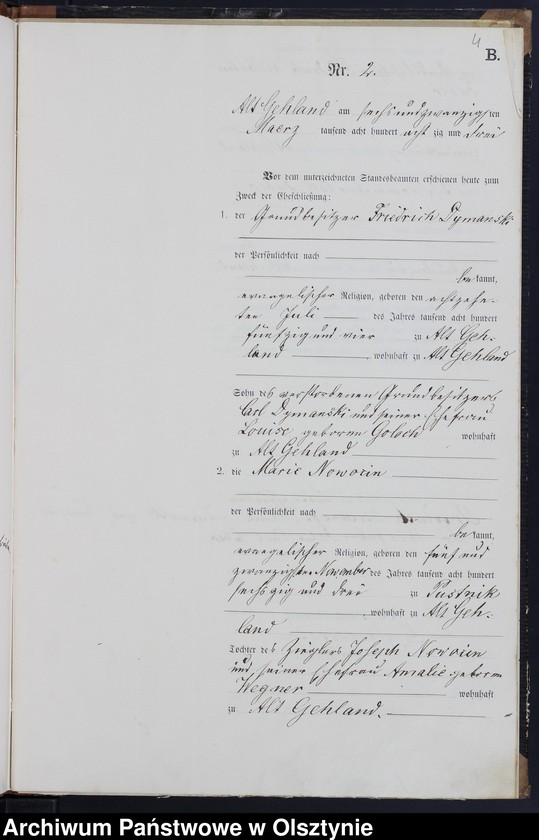 4
B.
Nr. 2.
Alt Gehland am sechsundzwanzigsten
Maerz tausend acht hundert achtzig und drei
Vor dem unterzeichneten Standesbeamten erschienen heute zum
Zweck der Eheschließung:
1. der Grundbesitzer Friedrich Dymanski
der Persönlichkeit nach
bekannt,
evangelischer Religion, geboren den achtzehn-
ten Juli des Jahres tausend acht hundert
fünfzig und vier zu Alt Geh-
land, wohnhaft zu Alt Gehland
Sohn des verstorbenen Grundbesitzers
Carl Dymanski und seiner Ehefrau
Louise geborene Goloch wohnhaft
zu Alt Gehland
2. die Marie Nowozin
der Persönlichkeit nach
bekannt,
evangelischer Religion, geboren den fünf und
zwanzigsten November des Jahres tausend acht hundert
sechszig und drei zu Pustnik
, wohnhaft zu Alt Geh-
land
Tochter des Zieglers Joseph Nowozin
und seiner Ehefrau Amalie geborene
Wegner wohnhaft
zu Alt Gehland.
Archiwum Państwowe w Olsztynie